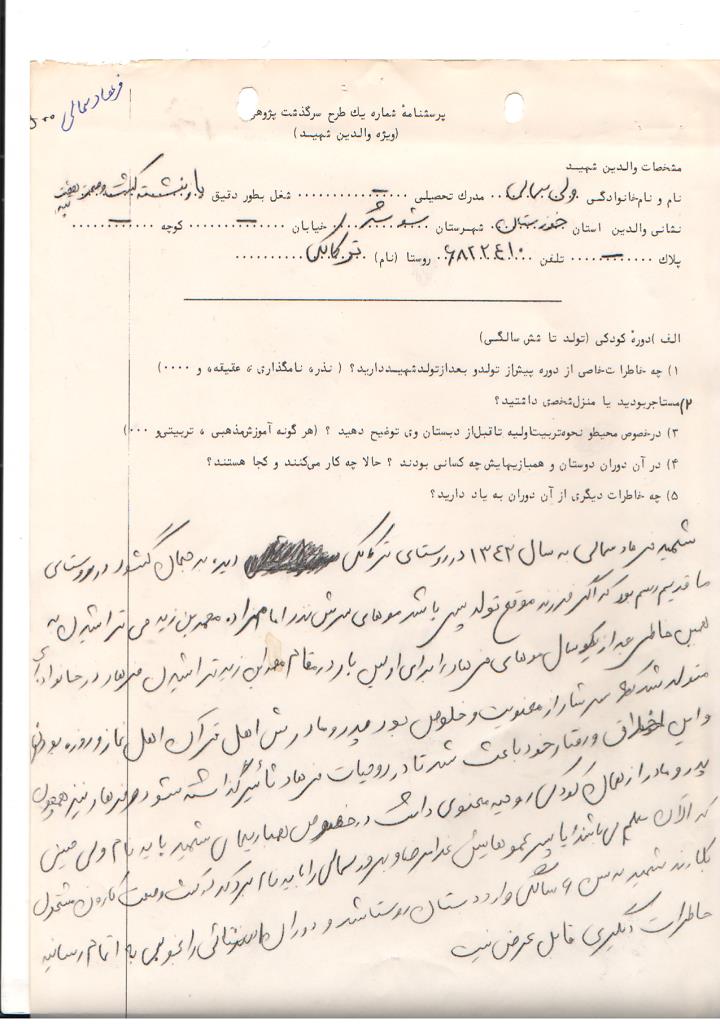 فرهاد سمالی
پرسشنامهٔ شماره یك طرح سرگذشت پژوهی
(ویژه والدین شهید)
مشخصات والدین شهید
نام و نام‌خانوادگی ولی سمالی مدرك تحصیلی – شغل بطور دقیق بازنشسته کشت و صنعت هفت تپه
نشانی والدین استان خوزستان شهرستان شوشتر خیابان – کوچه –
پلاك – تلفن ۶۸۲۲۴۱۰ روستا (نام) ترکالکی
الف) دورهٔ کودکی (تولد تا شش سالگی)
۱) چه خاطرات خاصی از دوره پیش‌از تولد و بعداز تولد شهید دارید؟ (نذر، نامگذاری، عقیقه، و ۰۰۰۰)
۲) مستاجر بودید یا منزل شخصی داشتید؟
۳) در خصوص محیط و نحوه تربیت اولیه تا قبل از دبستان وی توضیح دهید ؟ (هر گونه آموزش مذهبی ، تربیتی و ۰۰۰)
۴) در آن دوران دوستان و همبازیهایش چه کسانی بودند ؟ حالا چه کار می‌کنند و کجا هستند؟
۵) چه خاطرات دیگری از آن دوران به یاد دارید؟
شهید فرهاد سمالی به سال ۱۳۴۲ در روستای ترکالکی دیده به جهان گشود در روستای
ما قدیم رسم بود که اگر فرزند موقع تولد پسر باشد موهای سرش نذر امامزاده محمد بن زید می تراشیدن به
همین خاطر بعد از یکسال موهای فرهاد را برای اولین بار در مقام محمد ابن زید تراشیدن فرهاد در خانواده‌ای
متولد شد که سرشار از معنویت و خلوص بود پدر و مادرش اهل قرآن اهل نماز و روزه بودند
و این اخلاق و رفتار خود باعث شد تا در روحیات فرهاد تأثیر گذاشته شود و فرهاد نیز همچون
پدر و مادر از همان کودکی روحیه معنوی داشت در خصوص همبازیهای شهید باید به نام ولی
که الان معلم می باشد یا پسر عموهایش غلامرضا و بهروز سمالی را باید نام برد که در کشت و صنعت کارون مشغول
بکارند شهید به سن ۶ سالگی وارد دبستان روستا شد و دوران ابتدائی را بخوبی به اتمام رسانید
خاطرات دیگری قابل عرض نیست